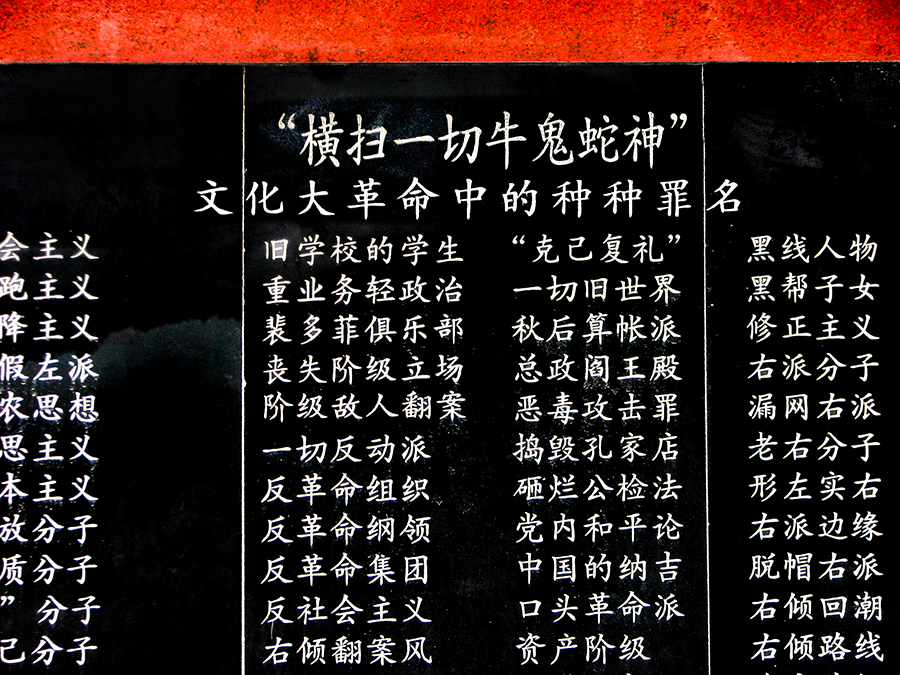 “横扫一切牛鬼蛇神”
文化大革命中的种种罪名
会主义
跑主义
降主义
假左派
农思想
思主义
本主义
放分子
质分子
”分子
己分子
旧学校的学生
重业务轻政治
裴多菲俱乐部
丧失阶级立场
阶级敌人翻案
一切反动派
反革命组织
反革命纲领
反革命集团
反社会主义
右倾翻案风
“克己复礼”
一切旧世界
秋后算帐派
总政阎王殿
恶毒攻击罪
捣毁孔家店
砸烂公检法
党内和平论
中国的纳吉
口头革命派
资产阶级
黑线人物
黑帮子女
修正主义
右派分子
漏网右派
老右分子
形左实右
右派边缘
脱帽右派
右倾回潮
右倾路线